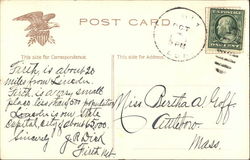 POST CARD
This side for Correspondence.
This side for Address.
OCT
Firth, is about 20
miles from Lincoln.
Firth is a very small
place less than 500 population
Lincoln is our State
Capital, city of about 65,000.
Sincerely,
J. R. Dick
Firth, Neb.
Miss Bertha A. Goff
Attleboro,
Mass.